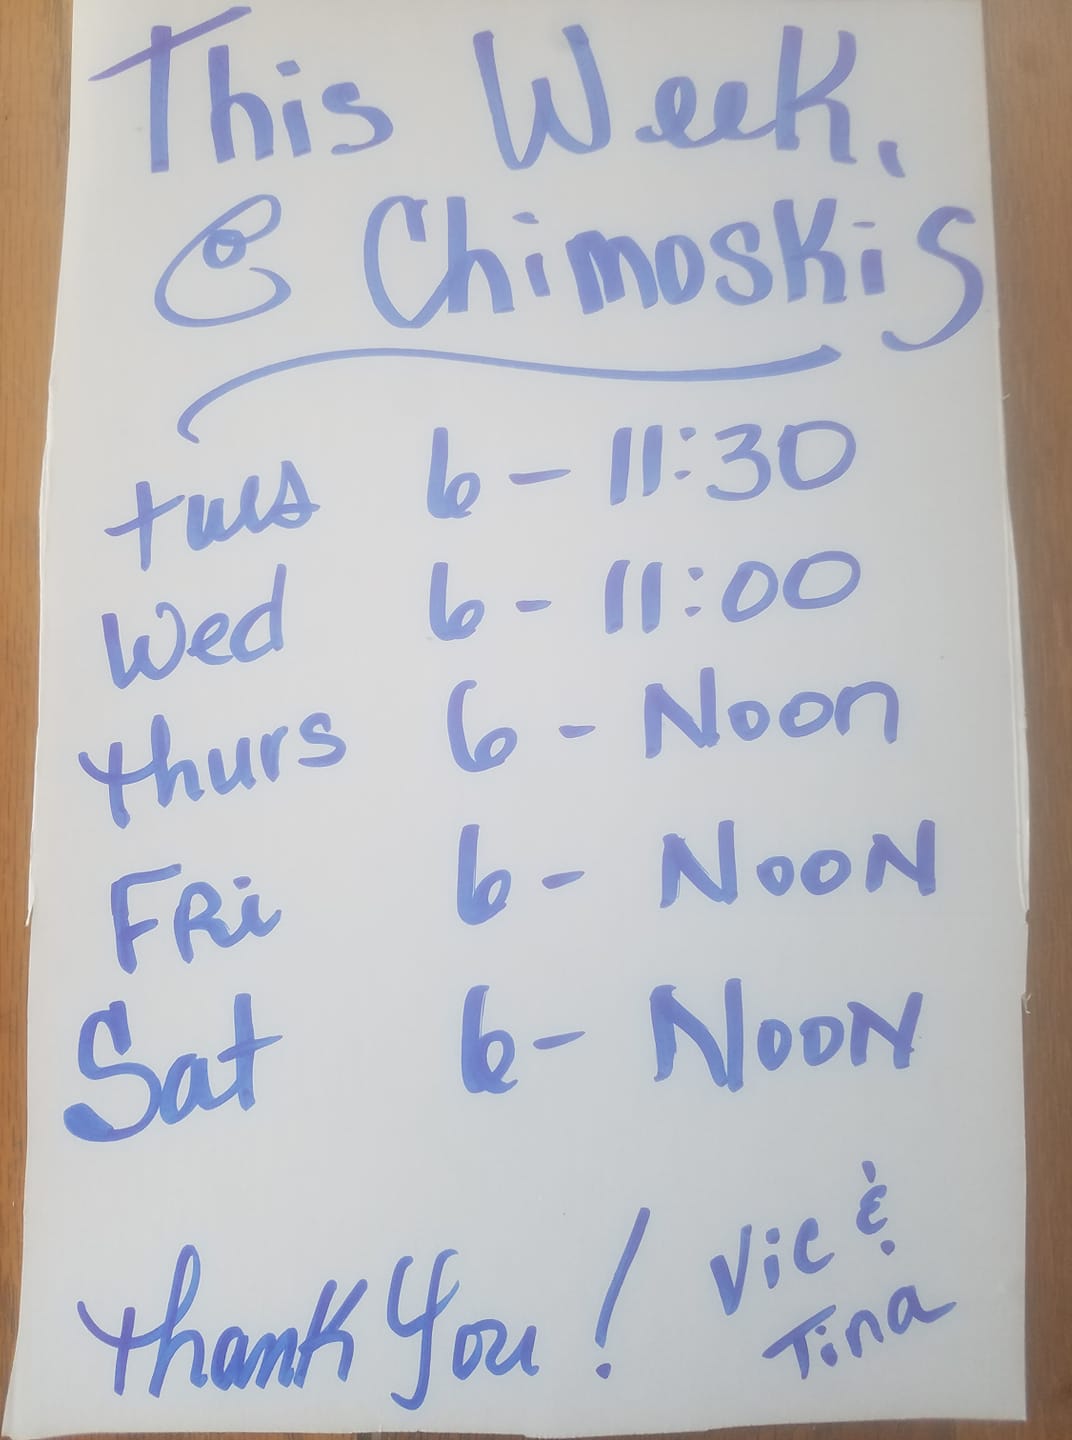 This Week,
@ Chimoskis
Tues 6 - 11:30
Wed 6 - 11:00
Thurs 6 - Noon
FRi 6 - NooN
Sat 6 - NooN
Thank You! Vic &
Tina